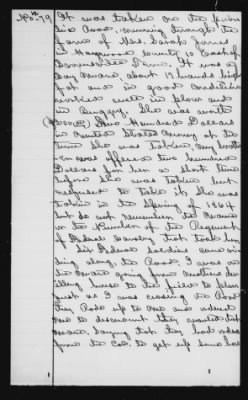 No. 79 It was taken on the public
road, running through the
farm of Mrs. Sarah Jones
in Haywood County, East of
Brownsville Tenn. It was a
bay mare, about 15 hands high
fat and in good condition
worked well in plow and
in buggy. She was worth
($200.00) Two Hundred Dollars
in United States Money at the
time she was taken, my brother
was offered two hundred
Dollars for her a short time
before she was taken but
refused to take it, she was
taken in the Spring of 1864
but do not remember the name
or the number of the Regiment
of Federal Cavalry that took her
Six Federal soldiers came
along the Road, I was on
the mare going from mothers dw
elling house to the field to plow
just as I was crossing the Road
they Rode up to me and ordered
me to dismount they wanted that
mare, saying that they had rode
from the Co. to get up some hor